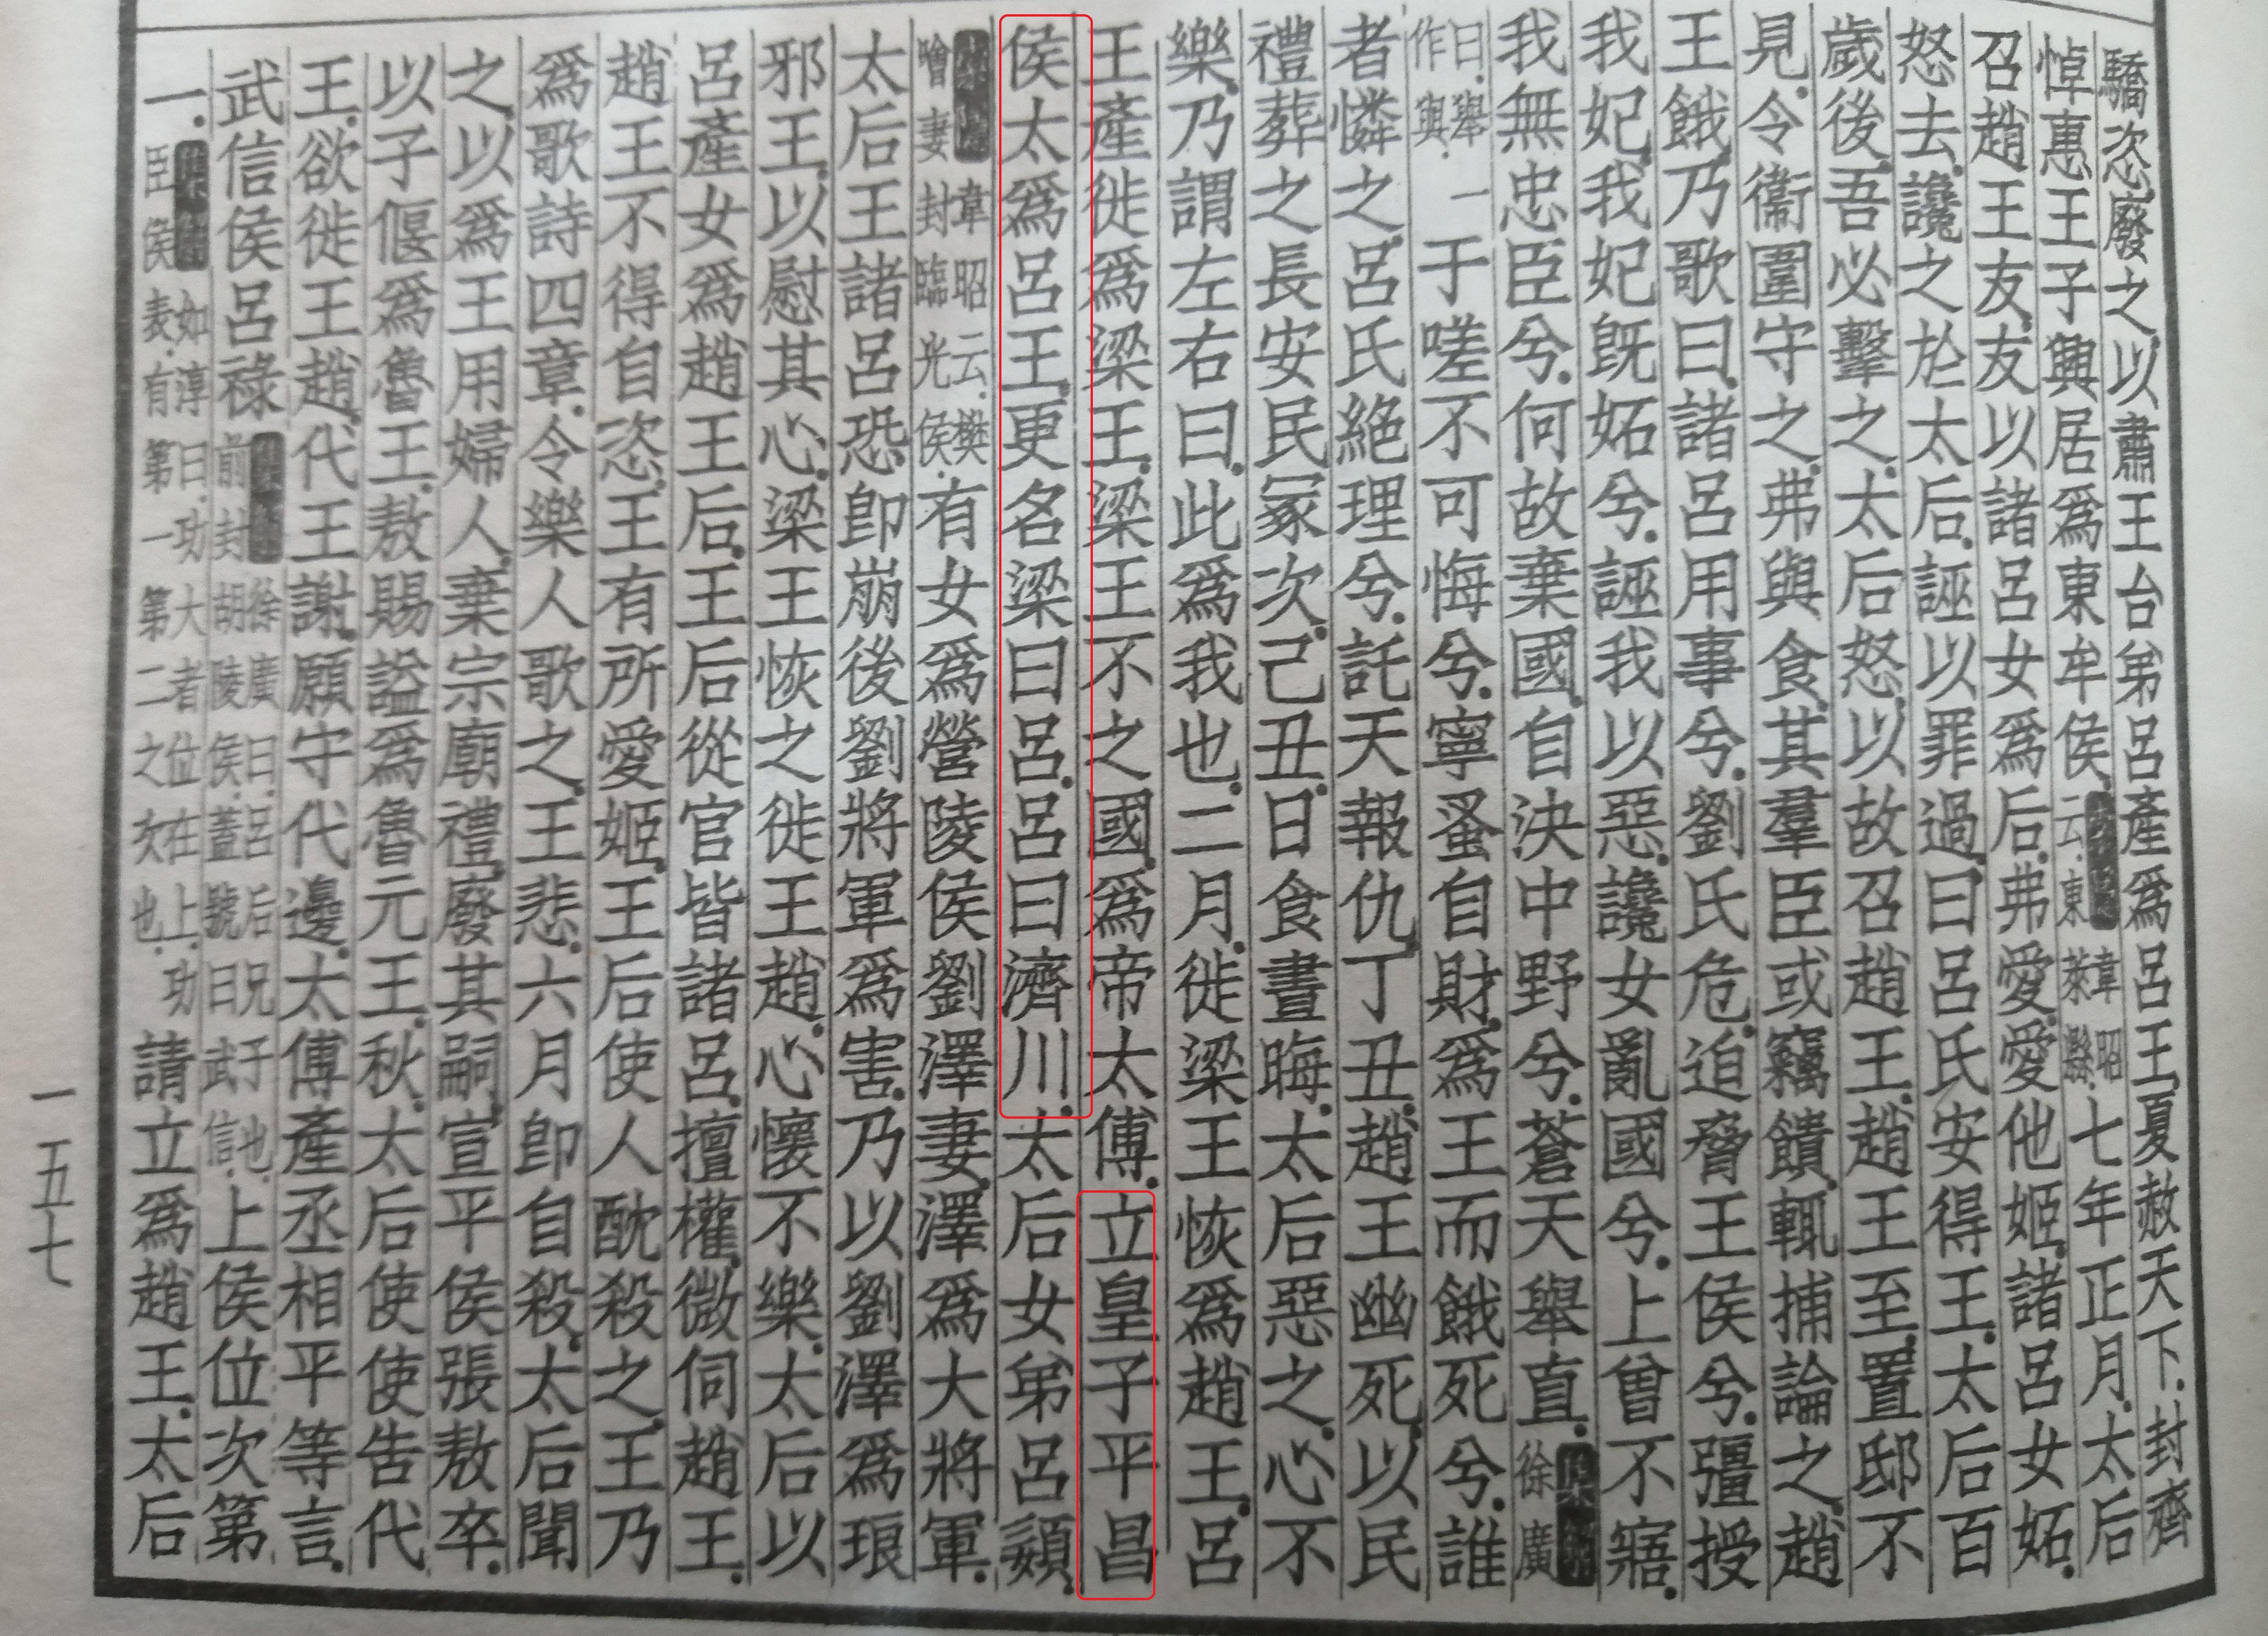 驕恣．廢之．以肅王台弟呂產爲呂王．夏．赦天下．封齊
悼惠王子興居爲東牟侯．索隱韋昭云．東萊縣．七年正月．太后
召趙王友．友以諸呂女爲后．弗愛．愛他姬．諸呂女妬．
怒去．讒之於太后．誣以罪過．曰呂氏安得王．太后百
歲後．吾必擊之．太后怒．以故召趙王．趙王至．置邸不
見．令衞圍守之．弗與食．其羣臣或竊饋．輒捕論之．趙
王餓．乃歌曰．諸呂用事兮．劉氏危．迫脅王侯兮．彊授
我妃．我妃既妬兮．誣我以惡．讒女亂國兮．上曾不寤．
我無忠臣兮．何故棄國．自決中野兮．蒼天舉直．集解徐廣
曰．舉一作與．于嗟不可悔兮．寧蚤自財．爲王而餓死兮．誰
者憐之．呂氏絕理兮．託天報仇．丁丑．趙王幽死．以民
禮葬之長安民冢次．己丑．日食晝晦．太后惡之．心不
樂．乃謂左右曰．此爲我也．二月．徙梁王恢爲趙王．呂
王產徙爲梁王．梁王不之國．爲帝太傅．立皇子平昌
侯太爲呂王．更名梁曰呂．呂曰濟川．太后女弟呂嬃．
索隱韋昭云．樊噲妻封臨光侯．有女爲營陵侯劉澤妻．澤爲大將軍．
太后王諸呂．恐．即崩後劉將軍爲害．乃以劉澤爲琅
邪王．以慰其心．梁王恢之徙王趙．心懷不樂．太后以
呂產女爲趙王后．王后從官皆諸呂．擅權．微伺趙王．
趙王不得自恣．王有所愛姬．王后使人酖殺之．王乃
爲歌詩四章．令樂人歌之．王悲．六月即自殺．太后聞
之．以爲王用婦人．棄宗廟禮．廢其嗣．宣平侯張敖卒．
以子偃爲魯王．敖賜謚爲魯元王．秋．太后使使告代
王．欲徙王趙．代王謝．願守代邊．太傅產丞相平等言．
武信侯呂祿集解徐廣曰．呂后兄子也．前封胡陵侯．蓋號曰武信．上侯位次第
一．集解如淳曰．功大者位在上．功臣侯表．有第一第二之次也．請立爲趙王．太后
一五七